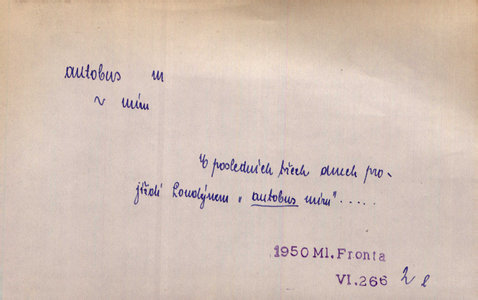 autobus m
~ míru
V posledních třech dnech pro-
jíždí Londýnem „autobus míru".....
1950 Ml. Fronta
VI.266 2 l